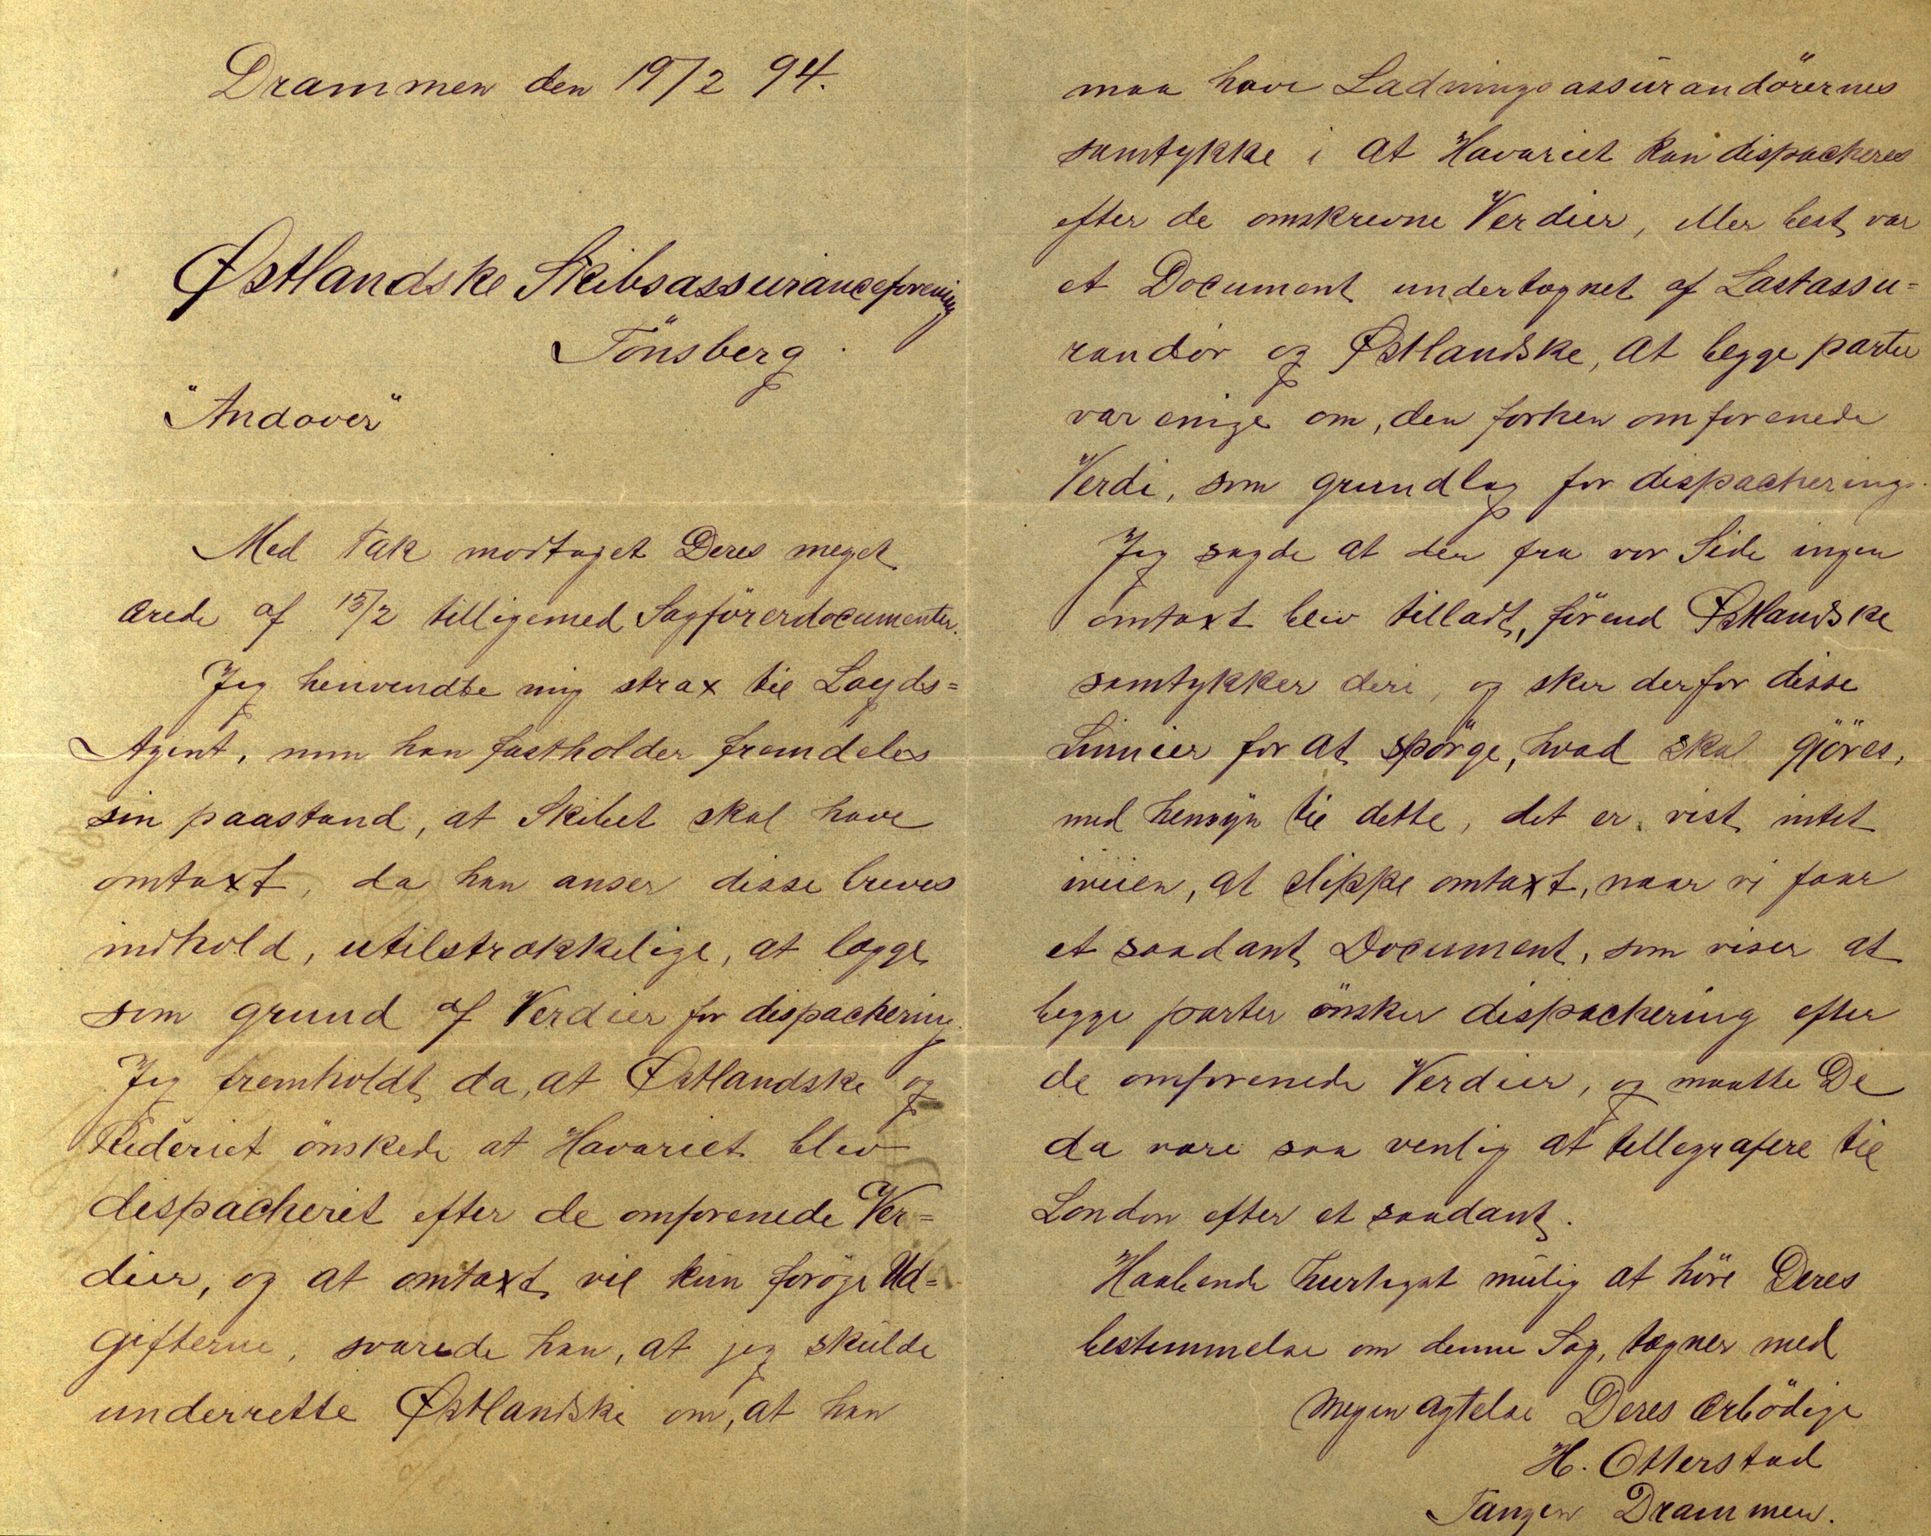 Drammen den 19/2 94.
Østlandske Skibsassuranceforening
Tönsberg.
"Andover"
Med Tak modtaget Deres meget
ærede af 15/2 tilligemed Sagförerdocumenter.
Jeg henvendte mig strax til Loyds-
Agent, men han fastholder fremdeles
sin paastand, at Skibet skal have
omtaxt, da han anser disse breves
indhold, utilstrækkelige, at lægge
som grund af Verdier for dispachering.
Jeg fremholdt da, at Østlandske og
Rederiet önskede at Havariet blev
dispacheret efter de omforenede Ver=
dier, og at omtaxt vil kun forøge Ud=
gifterne, svarede han, at jeg skulde
underrette Østlandske om, at han
maa have Ladningsassurandörernes
samtykke i at Havariet kan dispacheres
efter de omskrevne Verdier, eller best var
et Document undertegnet af Lastassu=
randör og Østlandske, at begge parter
var enige om, den omforenede
Verdi, som grundlag for dispachering.
Jeg sagde at der fra vor Side ingen
omtaxt blev tilladt, förend Østlandske
samtykker deri, og sker derfor disse
Linnier for at spörge, hvad skal gjöres,
med hensyn til dette, det er vist intet
iveien, at slippe omtaxt, naar vi faar
et saadant Document, som viser at
begge parter önsker dispachering efter
de omforenede Verdier, og maatte De
da være saa venlig at tellegrafere til
London efter et saadant.
Haabende hurtigst mulig at höre Deres
bestemmelse om denne Sag, tegner med
megen agtelse Deres ærbödige
H. Otterstad
Tangen Drammen.